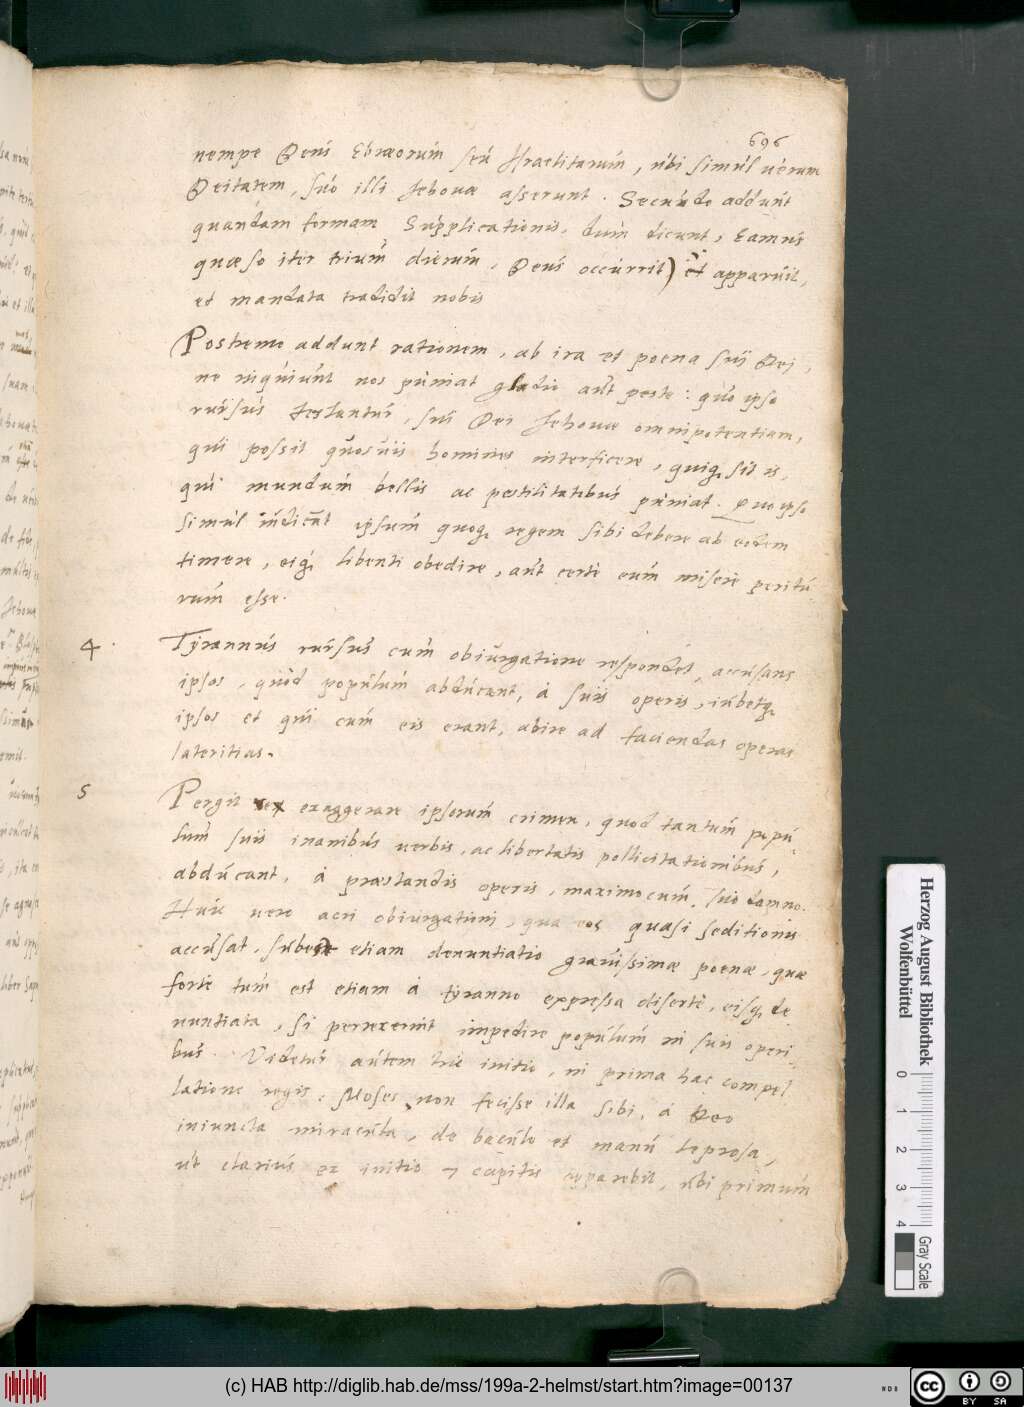 696
nempe Deus Ebraeorum seu Israelitarum, ubi simul veram
Deitatem, suo illi Jehovae asserunt. Secundo addunt
quandam formam Supplicationis, dum dicunt, Eamus
quaeso iter trium dierum, Deus occurrit) et apparuit,
et mandata tradidit nobis
Postremo addunt rationem, ab ira et poena sui Dei,
ne inquiunt nos puniat gladio aut peste: quo ipso
rursus testantur, sui Dei Jehovae omnipotentiam,
qui possit quosuis homines interficere, quiq; sit is,
qui mundum bellis ac pestilitatibus puniat. Quo ipso
simul indicant ipsum quoq; regem sibi debere ab eodem
timere, eiq; libenti obedire, aut certe eum misere peritu-
rum esse.
4. Tyrannus rursus cum obiurgatione respondet, accusans
ipsos, quod populum abducant, à suis operis, iubetq;
ipsos et qui cum eis erant, abire ad faciendas operas
lateritias.
5 Pergit rex exaggerare ipsorum crimen, quod tantum popu-
lum suis inanibus verbis, ac libertatis pollicitationibus,
abducant, à praestandis operis, maximo cum suo damno.
Huic vero acri obiurgationi, qua eos quasi seditionis
accusat, subest etiam denuntiatio gravissimae poenae, quae
forte tum est etiam à tyranno expressa disertè, eisq; de
nuntiata, si perrexerint impedire populum in suis operi-
bus. Videtur autem hic initio, in prima hac compel
latione regis, Moses non fecisse illa sibi, à Deo
iniuncta miracula, de baculo et manu leprosa,
ut clarius ex initio 7 capitis apparebit, ubi primum
Herzog August Bibliothek
Wolfenbüttel
0 1 2 3 4
Gray Scale
(c) HAB http://diglib.hab.de/mss/199a-2-helmst/start.htm?image=00137
cc BY SA